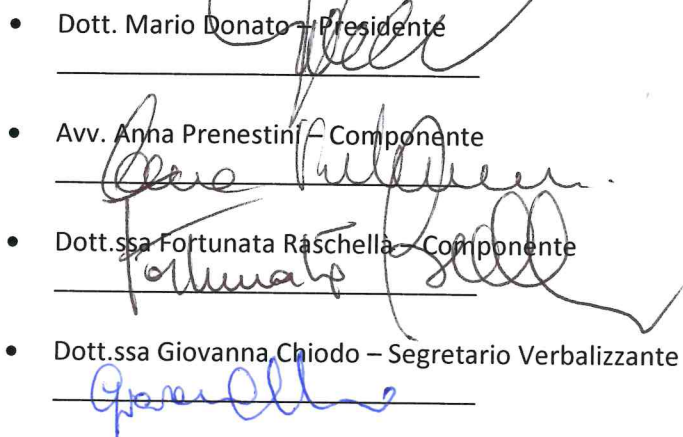 • Dott. Mario Donato – Presidente
• Avv. Anna Prenestini – Componente
• Dott.ssa Fortunata Raschellà – Componente
Fortunata
• Dott.ssa Giovanna Chiodo – Segretario Verbalizzante